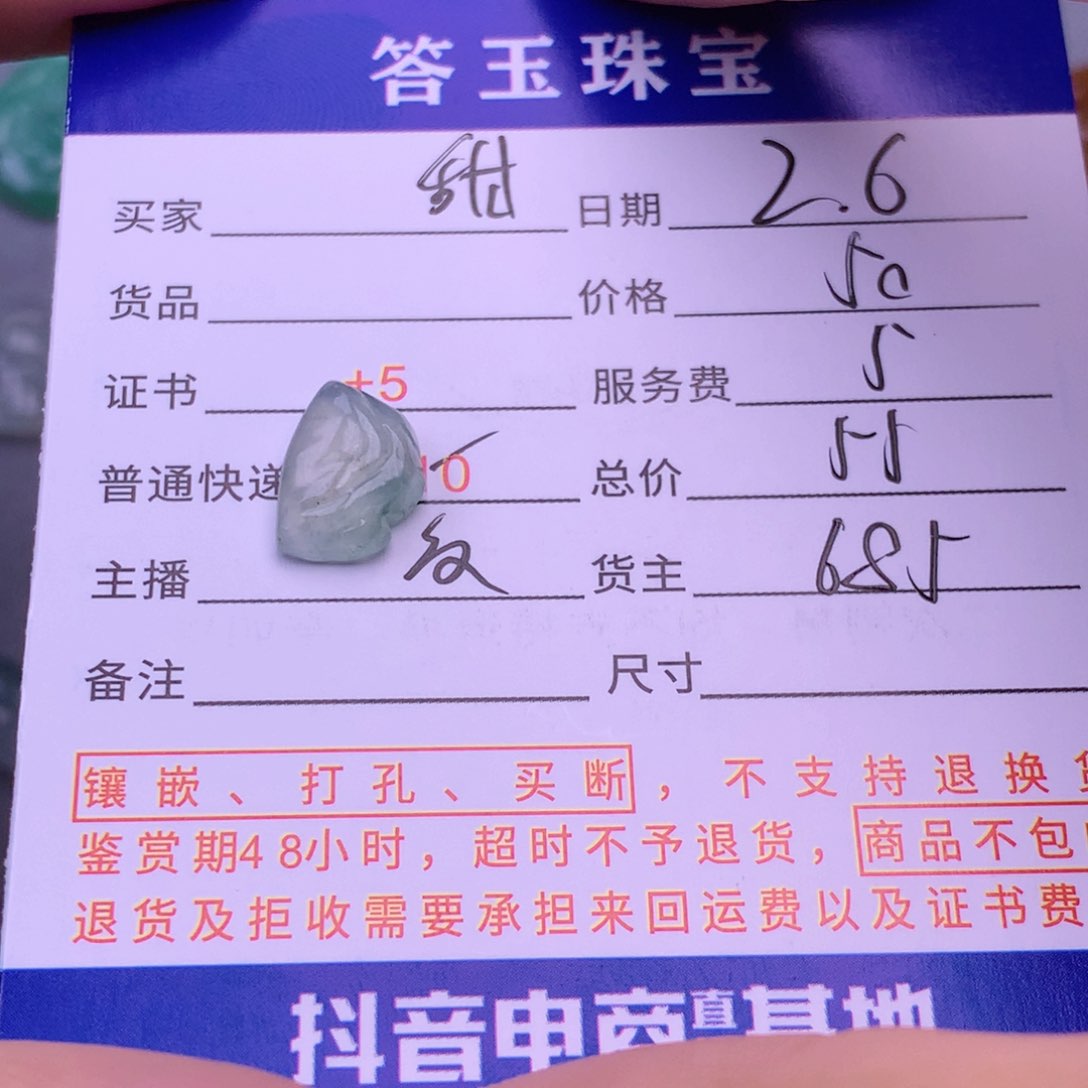 答玉珠宝
买家 甜 日期 2.6
货品 价格 50
证书 +5 服务费 5
普通快递 10 总价 55
主播 纹 货主 685
备注 尺寸
镶嵌、打孔、买断，不支持退换
鉴赏期48小时，超时不予退货，商品不包
退货及拒收需要承担来回运费以及证书费
抖音电商直播基地